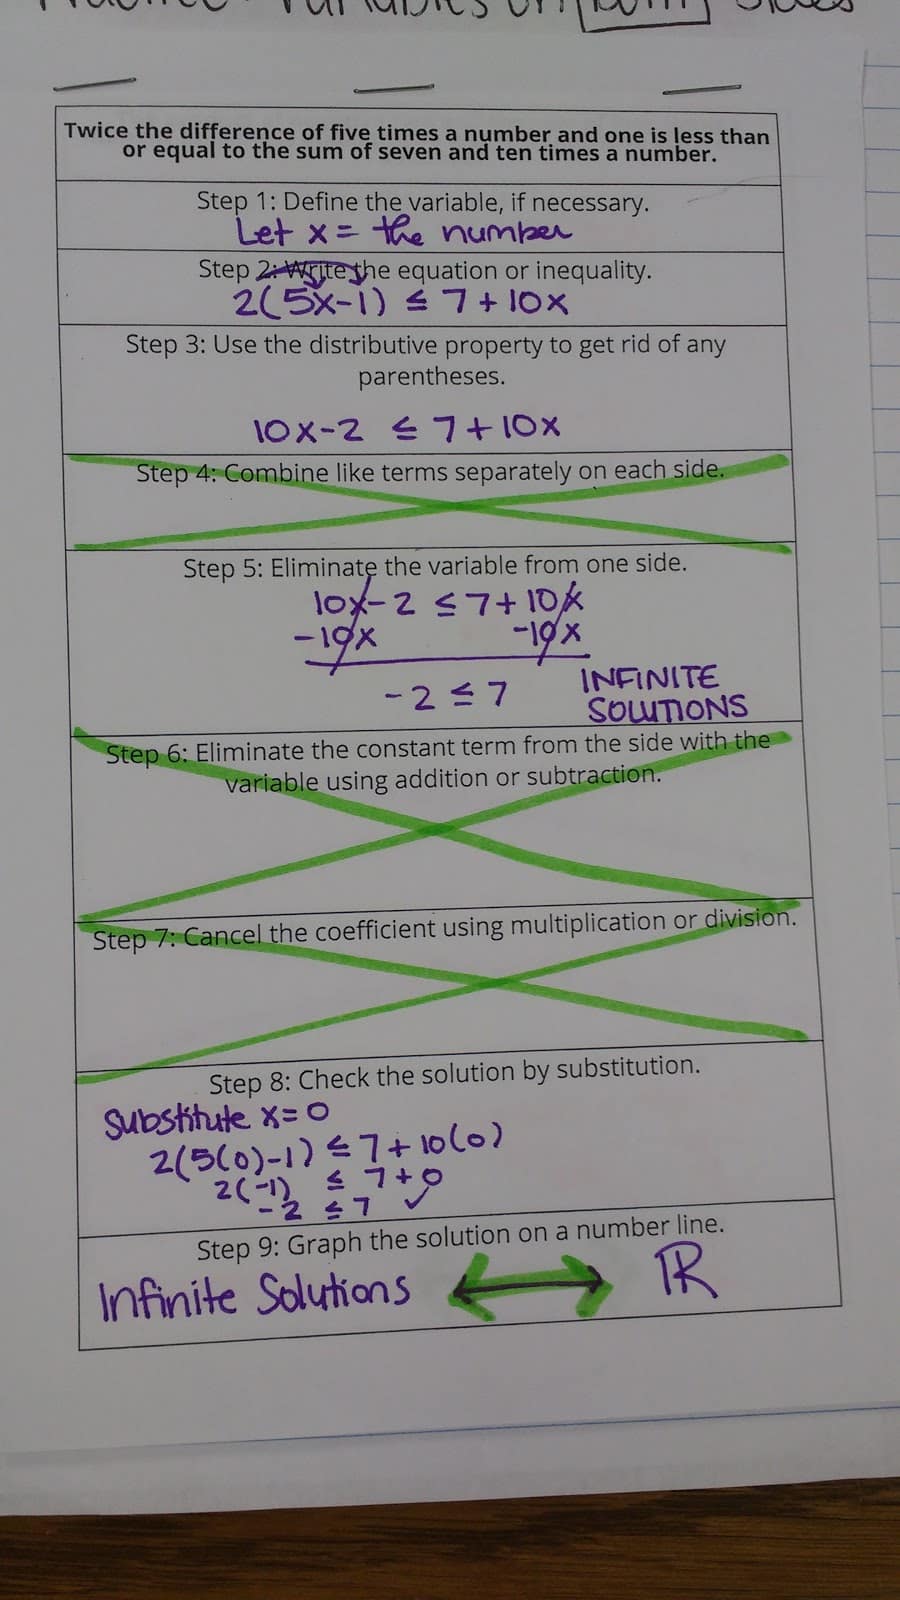 Practice: Variables on both sides
Twice the difference of five times a number and one is less than
or equal to the sum of seven and ten times a number.
Step 1: Define the variable, if necessary.
Let x = the number
Step 2: Write the equation or inequality.
2(5x-1) ≤ 7+10x
Step 3: Use the distributive property to get rid of any
parentheses.
10x-2 ≤ 7+10x
Step 4: Combine like terms separately on each side.
Step 5: Eliminate the variable from one side.
10x-2 ≤ 7+10x
-10x -10x
-2 ≤ 7 INFINITE
SOLUTIONS
Step 6: Eliminate the constant term from the side with the
variable using addition or subtraction.
Step 7: Cancel the coefficient using multiplication or division.
Step 8: Check the solution by substitution.
Substitute x=0
2(5(0)-1) ≤ 7+10(0)
2(-1) ≤ 7+0
-2 ≤ 7 ✓
Step 9: Graph the solution on a number line.
Infinite Solutions ℝ